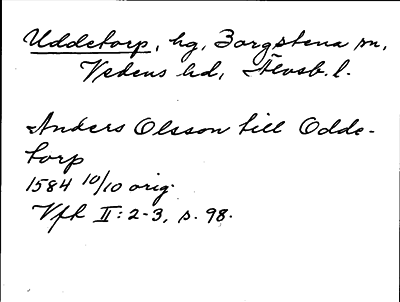 Uddetorp, hg, Borgstena sn,
Vedens hd, Älvsb. l.
Anders Olsson till Odde-
torp
1584 10/10 orig.
Vfl II: 2-3, s. 98.